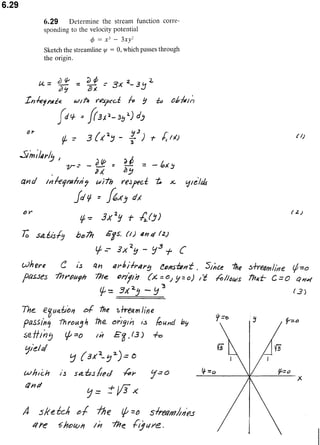 6.29
6.29 Determine the stream function corre-
sponding to the velocity potential
φ = x³ − 3xy²
Sketch the streamline ψ = 0, which passes through
the origin.
u = ∂ψ/∂y = ∂φ/∂x = 3x² − 3y²
Integrate with respect to y to obtain
∫dψ = ∫(3x² − 3y²) dy
or
ψ = 3(x²y − y³/3) + f₁(x) (1)
Similarly,
v = −∂ψ/∂x = ∂φ/∂y = −6xy
and integrating with respect to x yields
∫dψ = ∫6xy dx
or
ψ = 3x²y + f₂(y) (2)
To satisfy both Eqs. (1) and (2)
ψ = 3x²y − y³ + C
where C is an arbitrary constant. Since the streamline ψ=0
passes through the origin (x=0, y=0) it follows that C=0 and
ψ = 3x²y − y³ (3)
The equation of the streamline
passing through the origin is found by
setting ψ=0 in Eq. (3) to
yield
y(3x² − y²) = 0
which is satisfied for y=0
and
y = ±√3 x
A sketch of the ψ=0 streamlines
are shown in the figure.
ψ=0 y ψ=0
√3 √3
1 1
ψ=0 ψ=0
x